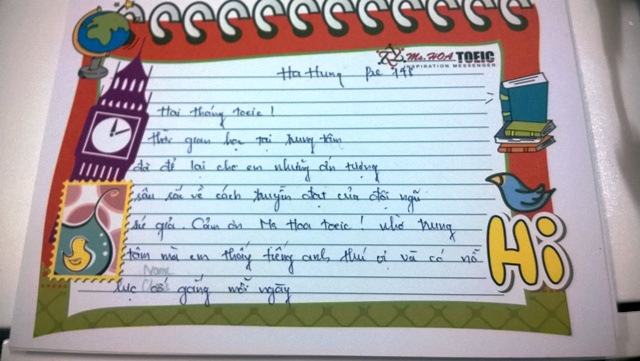 Ms. HOA TOEIC
INSPIRATION MESSENGER
Ha Hưng Pre 148
Hai tháng toeic !
Thời gian học tại trung tâm
đã để lại cho em những ấn tượng
sâu sắc về cách truyền đạt của đội ngũ
sứ giả. Cảm ơn Ms Hoa toeic ! nhờ trung
tâm mà em thấy tiếng anh thú vị và có nỗ
Name
lực cố gắng mỗi ngày
Class
Hi